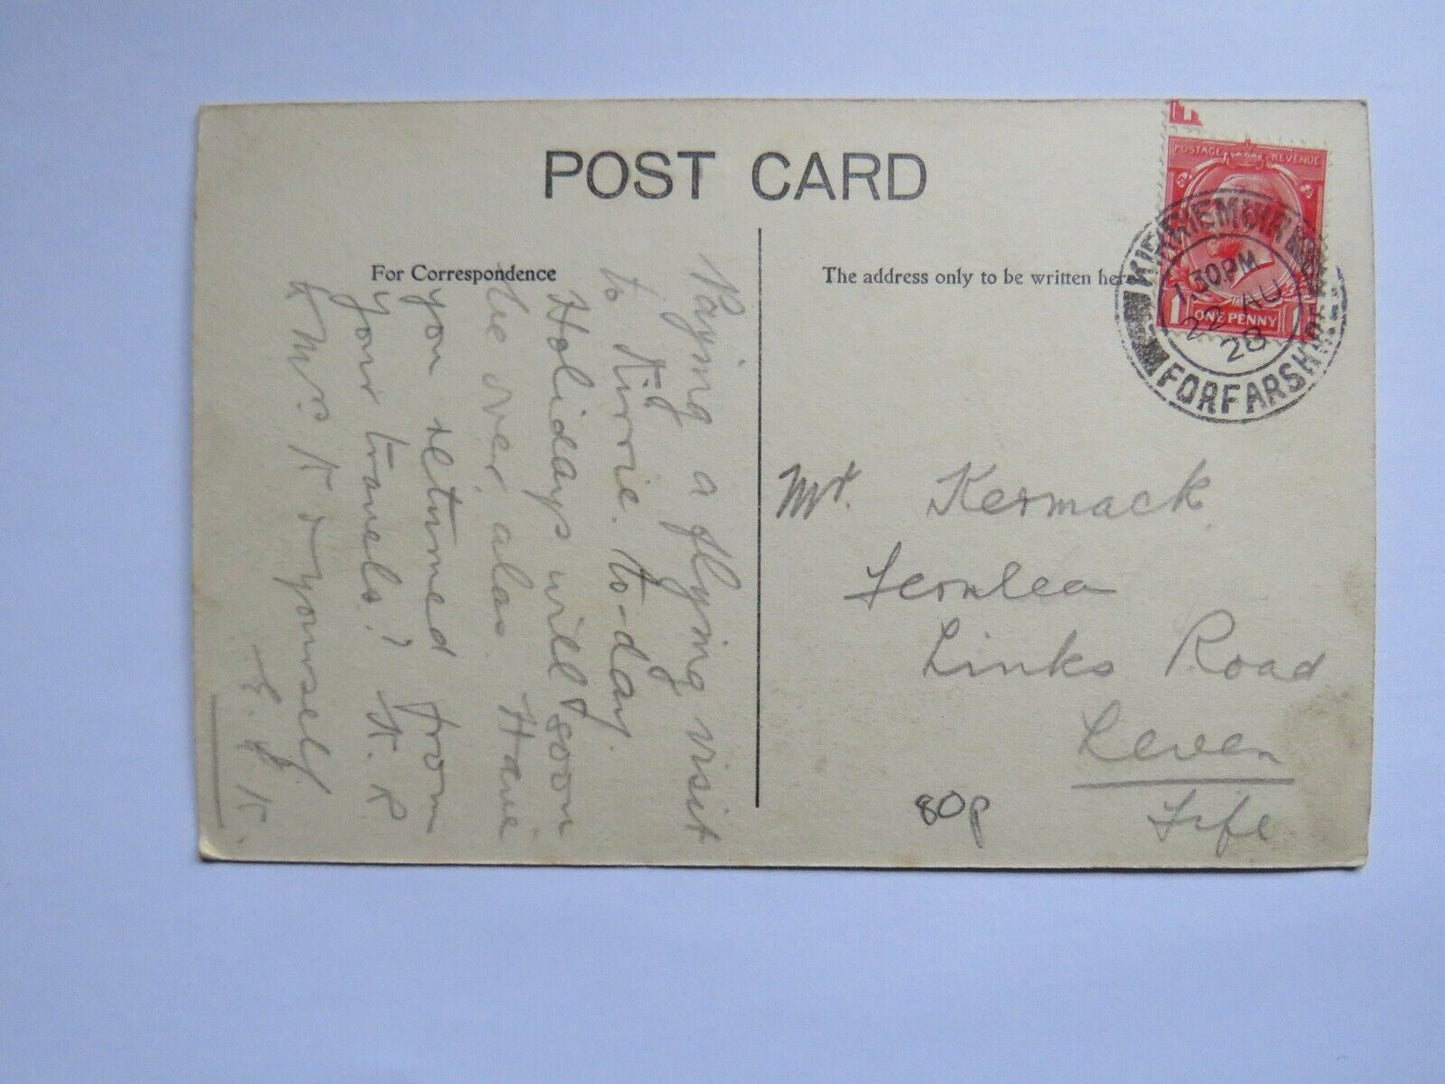 POST CARD
For Correspondence
The address only to be written here
POSTAGE REVENUE
1 ONE PENNY 1
KIRRIEMUIR
1.30PM
22 AU
28
FORFARSHIRE
Paying a flying visit
to Kirrie. to-day.
Holidays will soon
be over alas. Have
you returned from
your travels? K. R
& Mrs K & yourself
K.
Mr. Kermack
Fernlea
Links Road
Leven
Fife
80p